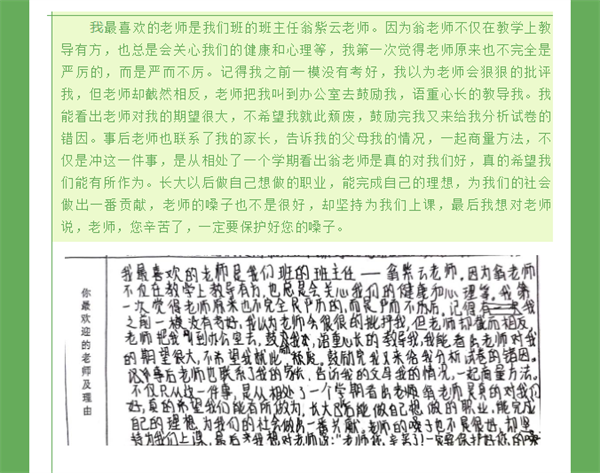 我最喜欢的老师是我们班的班主任翁紫云老师。因为翁老师不仅在教学上教
导有方，也总是会关心我们的健康和心理等，我第一次觉得老师原来也不完全是
严厉的，而是严而不厉。记得我之前一模没有考好，我以为老师会狠狠的批评
我，但老师却截然相反，老师把我叫到办公室去鼓励我，语重心长的教导我。我
能看出老师对我的期望很大，不希望我就此颓废，鼓励完我又来给我分析试卷的
错因。事后老师也联系了我的家长，告诉我的父母我的情况，一起商量方法，不
仅是冲这一件事，是从相处了一个学期看出翁老师是真的对我们好，真的希望我
们能有所作为。长大以后做自己想做的职业，能完成自己的理想，为我们的社会
做出一番贡献，老师的嗓子也不是很好，却坚持为我们上课，最后我想对老师
说，老师，您辛苦了，一定要保护好您的嗓子。
你最欢迎的老师及理由
我最喜欢的老师是我们班的班主任——翁紫云老师，因为翁老师
不仅在教学上教导有方，也总是会关心我们的健康和心理等，我第
一次觉得老师原来也不完全是严厉的，而是严而不厉。记得有一次我
之前一模没有考好，我以为老师会狠狠的批评我，但老师却截而相反，
老师把我叫到办公室去，鼓励我，语重心长的教导我，我能看出老师对我
的期望很大，不希望我就此颓废，鼓励完我又来给我分析试卷的错因。
事后老师也联系了我的家长，告诉我的父母我的情况，一起商量方法。
不仅只从这一件事，是从相处了一个学期看出老师翁老师是真的对我们
好，真的希望我们能有所作为，长大以后能做自己想做的职业，能完成
自己的理想，为我们的社会做出一番贡献，老师的嗓子也不是很好，却坚
持为我们上课，最后我想对老师说："老师，您辛苦了！一定要保护好您的嗓